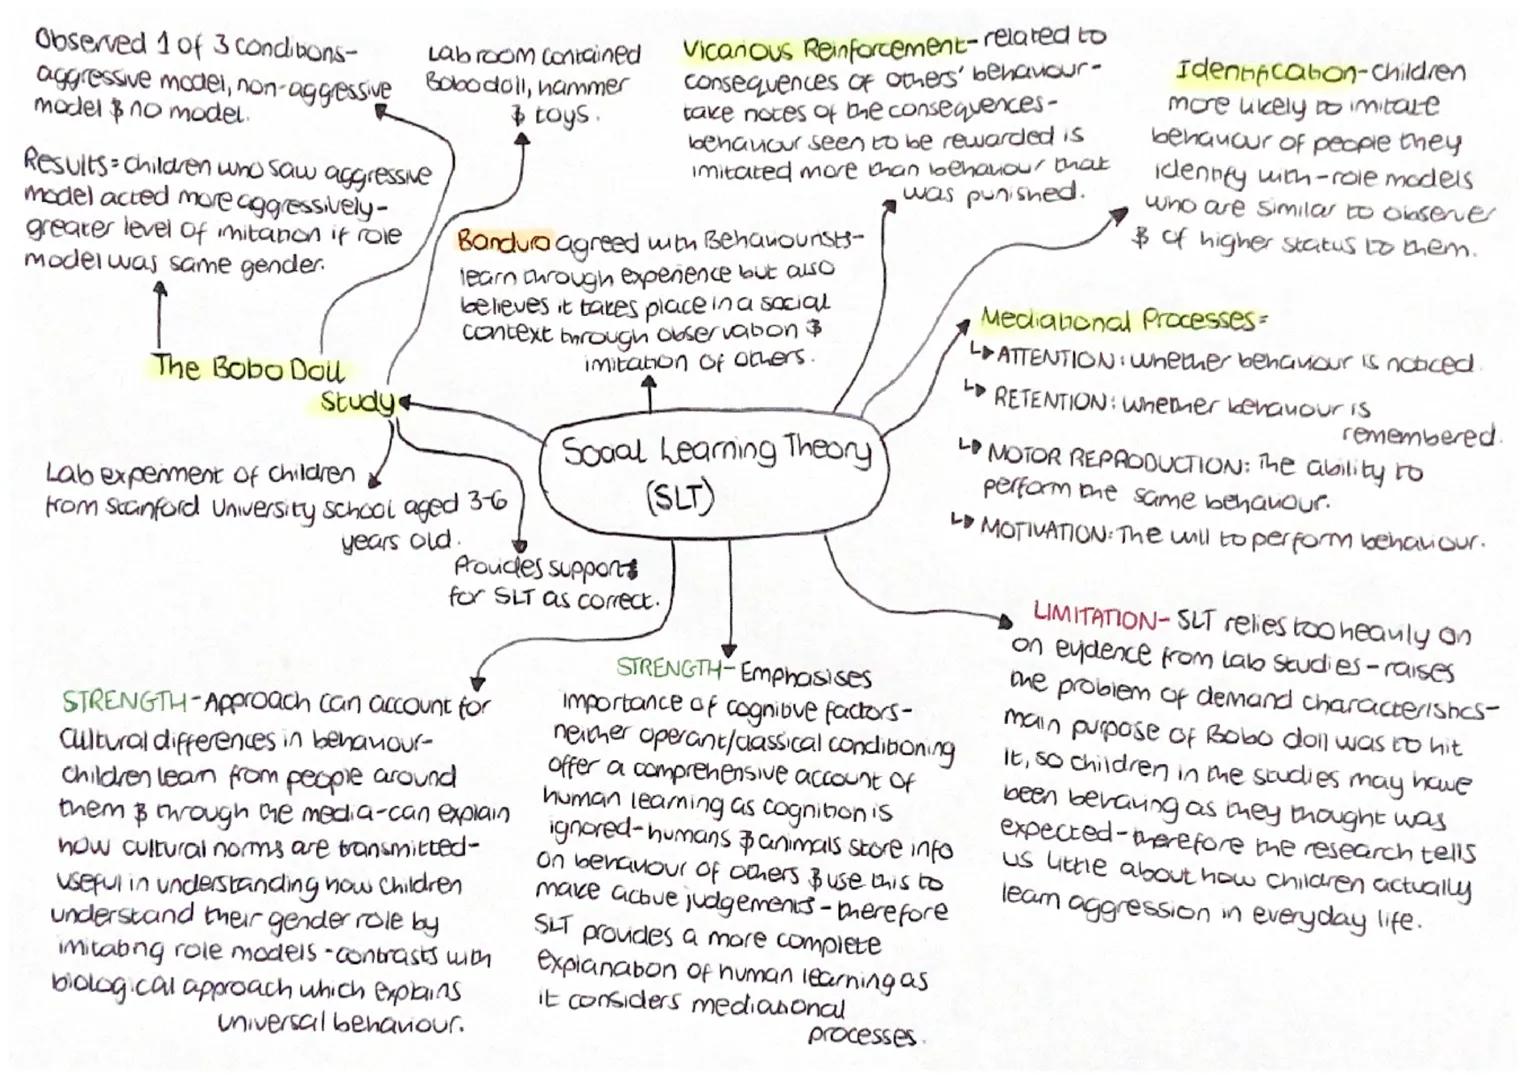 Observed 1 of 3 conditions-
aggressive model, non-aggressive
model & no model.
Results = children who saw aggressive
model acted more aggressively-
greater level of imitation if role
model was same gender.
The Bobo Doll
Study
Lab room contained
Bobo doll, hammer
& toys.
Lab experiment of children
from Stanford University school aged 3-6
years old.
Provides support
for SLT as correct.
Bandura agreed with Behaviourists-
learn through experience but also
believes it takes place in a social
context through observation &
imitation of others.
Social Learning Theory
(SLT)
Vicarious Reinforcement- related to
consequences of others' behaviour-
take notes of the consequences-
behaviour seen to be rewarded is
imitated more than behaviour that
was punished.
Identification- children
more likely to imitate
behaviour of people they
identify with-role models
who are similar to observer
& of higher status to them.
Mediational Processes=
ATTENTION: whether behaviour is noticed.
RETENTION: whether behaviour is
remembered.
MOTOR REPRODUCTION: The ability to
perform the same behaviour.
MOTIVATION: The will to perform behaviour.
STRENGTH-Approach can account for
cultural differences in behaviour-
children learn from people around
them & through the media-can explain
how cultural norms are transmitted-
useful in understanding how children
understand their gender role by
imitating role models-contrasts with
biological approach which explains
universal behaviour.
STRENGTH-Emphasises
importance of cognitive factors-
neither operant/classical conditioning
offer a comprehensive account of
human learning as cognition is
ignored-humans & animals store info
on behaviour of others & use this to
make active judgements-therefore
SLT provides a more complete
explanation of human learning as
it considers mediational
processes.
LIMITATION- SLT relies too heavily on
on evidence from lab studies-raises
the problem of demand characteristics-
main purpose of Bobo doll was to hit
it, so children in the studies may have
been behaving as they thought was
expected-therefore the research tells
us little about how children actually
learn aggression in everyday life.